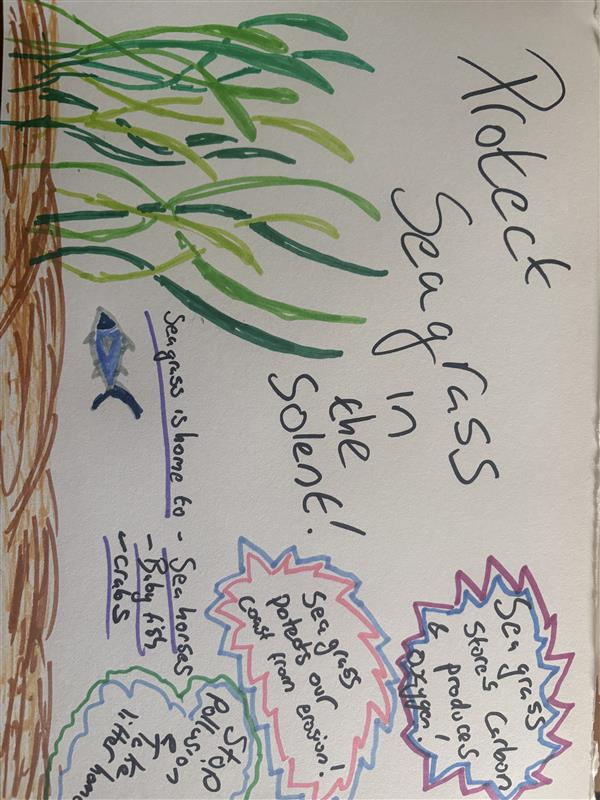 Protect
Seagrass
in
the
Solent!
Sea grass
stores Carbon
produces
& oxygen!
Sea grass
protects our
coast from erosion!
Seagrass is home to - Sea horses
- Baby fish
- crabs
Stop
Pollution
&
take
litter home